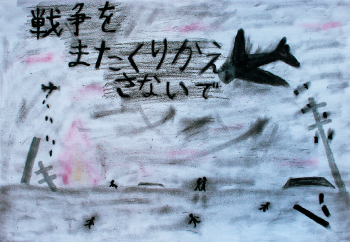 戦争を
またくりかえ
さないで